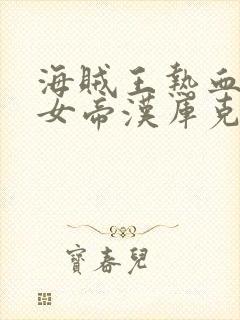 海賊王熱血
女帝漢庫克
寶春兒